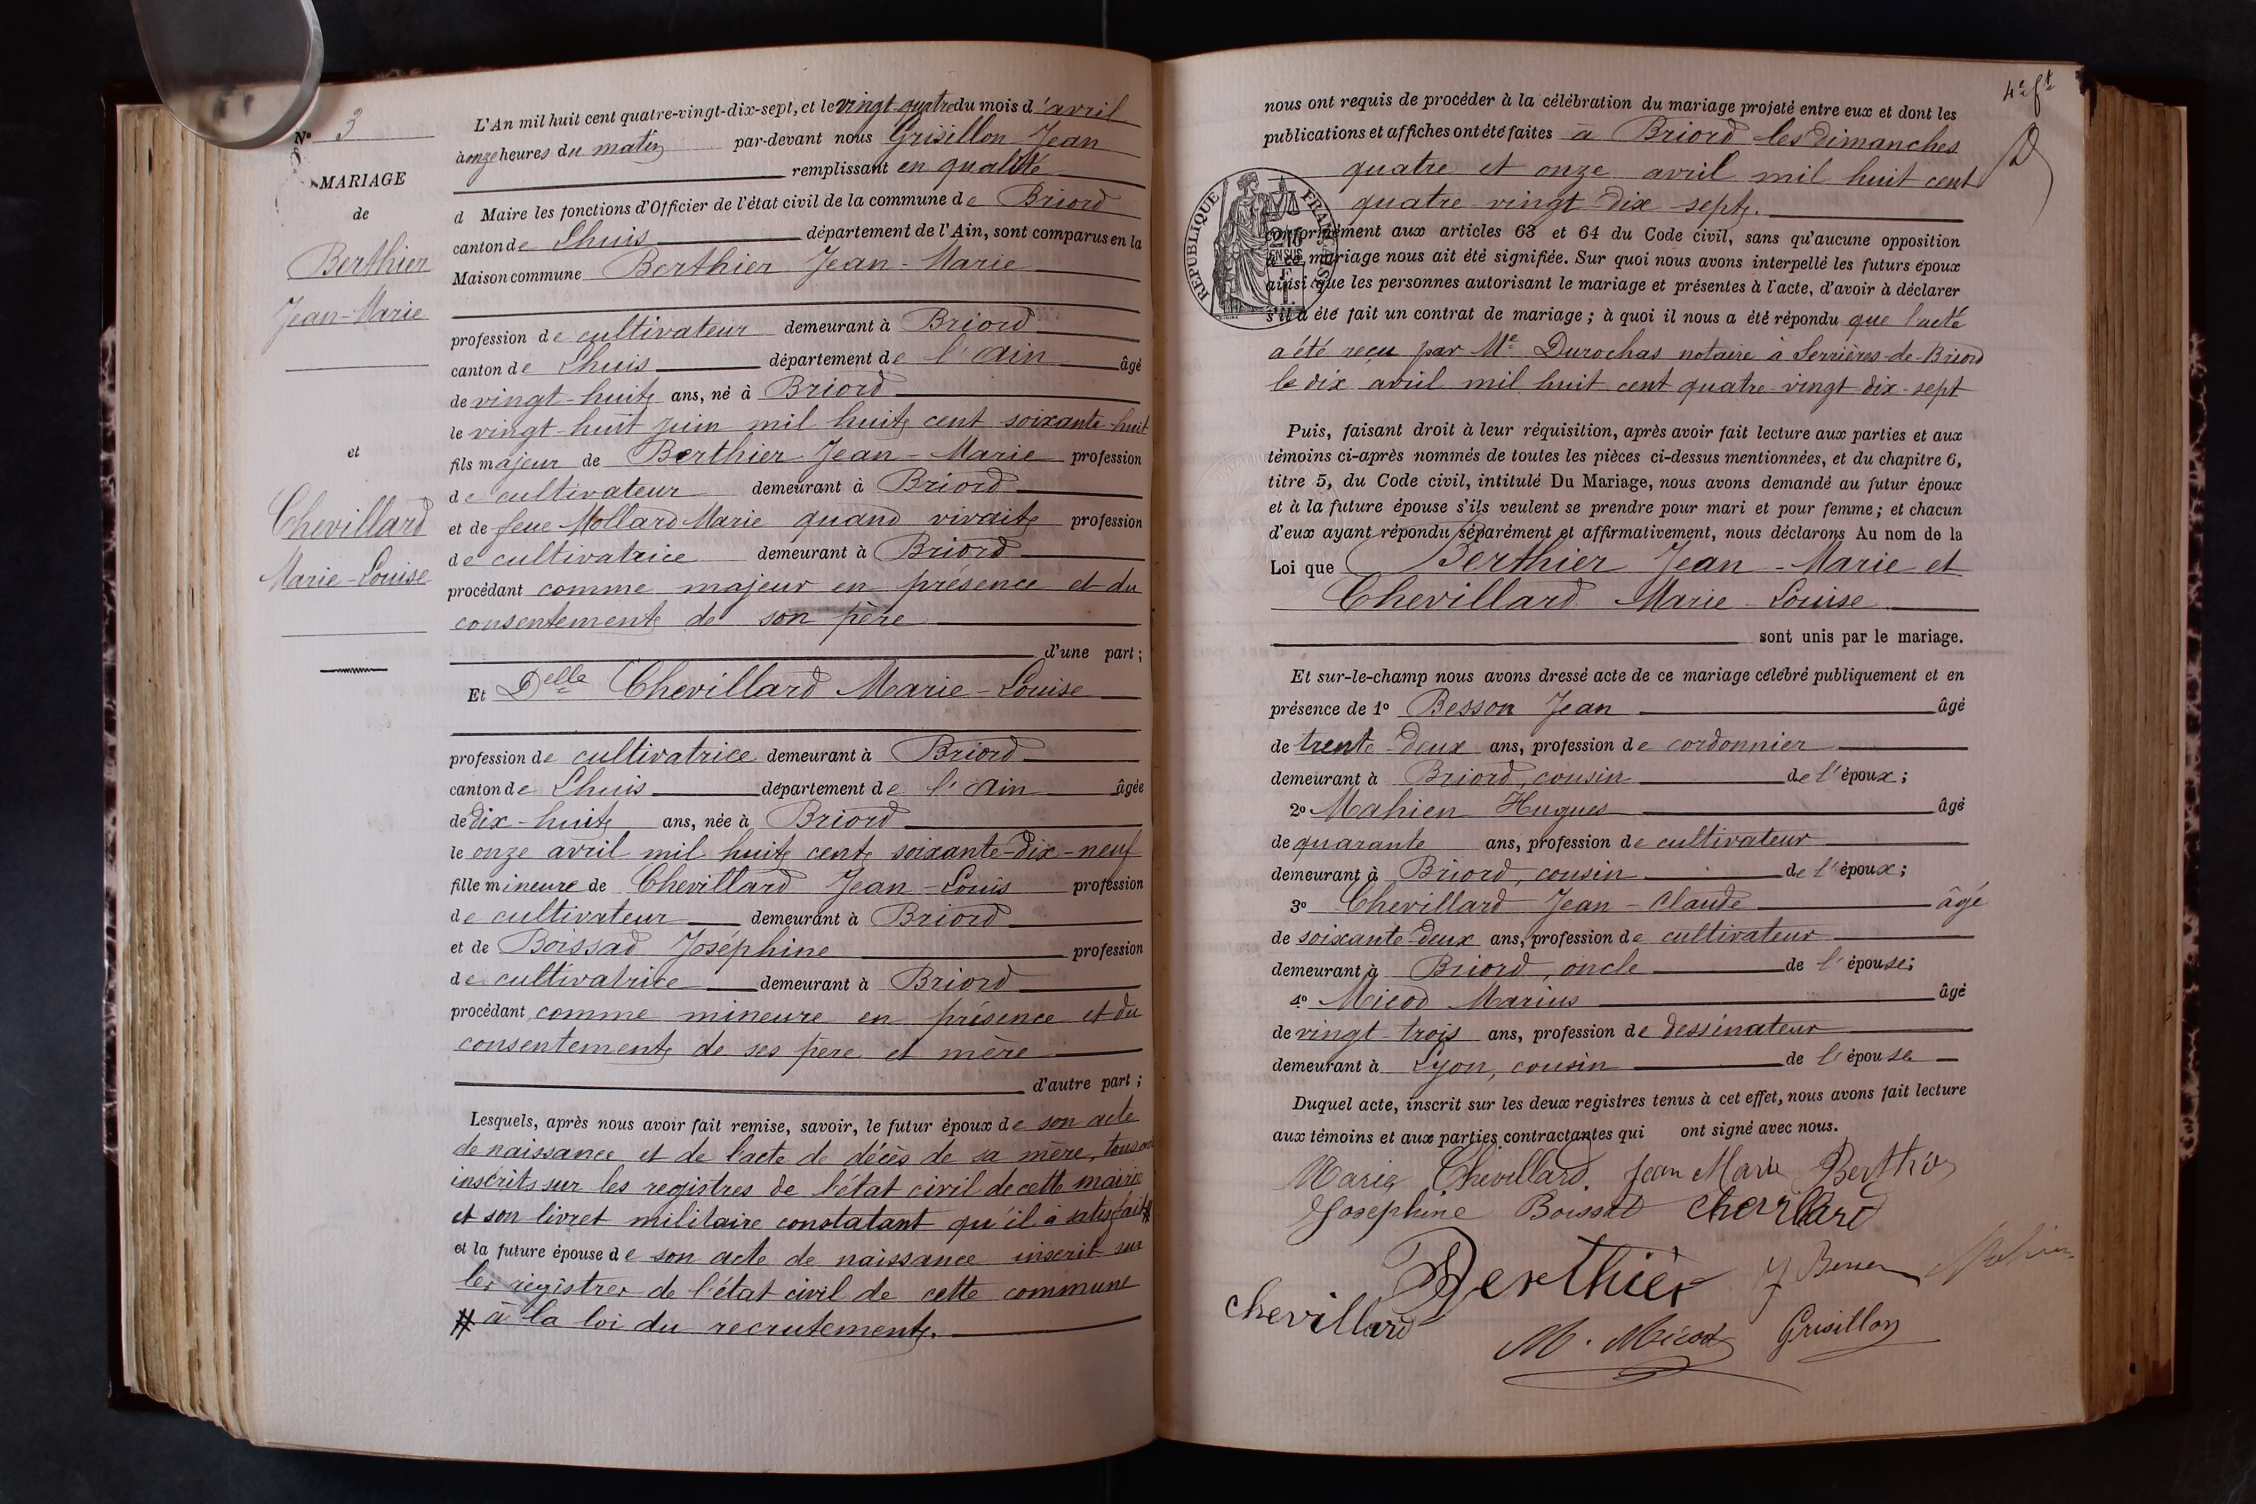 N° 3
MARIAGE
de
Berthier
Jean-Marie
et
Chevillard
Marie-Louise
L'An mil huit cent quatre-vingt-dix-sept, et le vingt-quatre du mois d'avril
à onze heures du matin par-devant nous Grisillon Jean
remplissant en qualité
d Maire les fonctions d'Officier de l'état civil de la commune de Briord
canton de Lhuis département de l'Ain, sont comparus en la
Maison commune Berthier Jean-Marie
profession de cultivateur demeurant à Briord
canton de Lhuis département de l'Ain âgé
de vingt-huit ans, né à Briord
le vingt-huit juin mil huit cent soixante-huit
fils majeur de Berthier Jean-Marie profession
de cultivateur demeurant à Briord
et de feue Mollard Marie quand vivait profession
de cultivatrice demeurant à Briord
procédant comme majeur en présence et du
consentement de son père
d'une part;
Et Delle Chevillard Marie-Louise
profession de cultivatrice demeurant à Briord
canton de Lhuis département de l'Ain âgée
de dix-huit ans, née à Briord
le onze avril mil huit cent soixante-dix-neuf
fille mineure de Chevillard Jean-Louis profession
de cultivateur demeurant à Briord
et de Boissad Joséphine profession
de cultivatrice demeurant à Briord
procédant comme mineure en présence et du
consentement de ses père et mère
d'autre part;
Lesquels, après nous avoir fait remise, savoir, le futur époux de son acte
de naissance et de l'acte de décès de sa mère, tous
inscrits sur les registres de l'état civil de cette mairie
et son livret militaire constatant qu'il à satisfait #
et la future épouse de son acte de naissance inscrit sur
les registres de l'état civil de cette commune
# à la loi du recrutement.
4e ft
nous ont requis de procéder à la célébration du mariage projeté entre eux et dont les
publications et affiches ont été faites à Briord les Dimanches
quatre et onze avril mil huit cent
quatre vingt dix sept.
RÉPUBLIQUE FRANÇAISE
conformément aux articles 63 et 64 du Code civil, sans qu'aucune opposition
à ce mariage nous ait été signifiée. Sur quoi nous avons interpellé les futurs époux
ainsi que les personnes autorisant le mariage et présentes à l'acte, d'avoir à déclarer
s'il a été fait un contrat de mariage; à quoi il nous a été répondu que l'acte
a été reçu par Me Durochas notaire à Serrières-de-Briord
le dix avril mil huit cent quatre-vingt dix-sept
Puis, faisant droit à leur réquisition, après avoir fait lecture aux parties et aux
témoins ci-après nommés de toutes les pièces ci-dessus mentionnées, et du chapitre 6,
titre 5, du Code civil, intitulé Du Mariage, nous avons demandé au futur époux
et à la future épouse s'ils veulent se prendre pour mari et pour femme; et chacun
d'eux ayant répondu séparément et affirmativement, nous déclarons Au nom de la
Loi que Berthier Jean-Marie et
Chevillard Marie-Louise
sont unis par le mariage.
Et sur-le-champ nous avons dressé acte de ce mariage célébré publiquement et en
présence de 1° Besson Jean âgé
de trente-deux ans, profession de cordonnier
demeurant à Briord, cousin de l'époux;
2° Mahien Hugues âgé
de quarante ans, profession de cultivateur
demeurant à Briord, cousin de l'époux;
3° Chevillard Jean-Claude âgé
de soixante-deux ans, profession de cultivateur
demeurant à Briord, oncle de l'épouse;
4° Micod Marius âgé
de vingt-trois ans, profession de dessinateur
demeurant à Lyon, cousin de l'épouse
Duquel acte, inscrit sur les deux registres tenus à cet effet, nous avons fait lecture
aux témoins et aux parties contractantes qui ont signé avec nous.
Marie Chevillard. Jean Marie Berthier
Josephine Boissad Chevillard
Berthier
Chevillard
M. Micod Grisillon